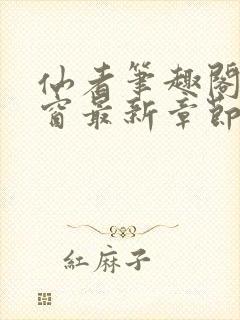 仙者筆趣閣
窗最新章節
紅麻子